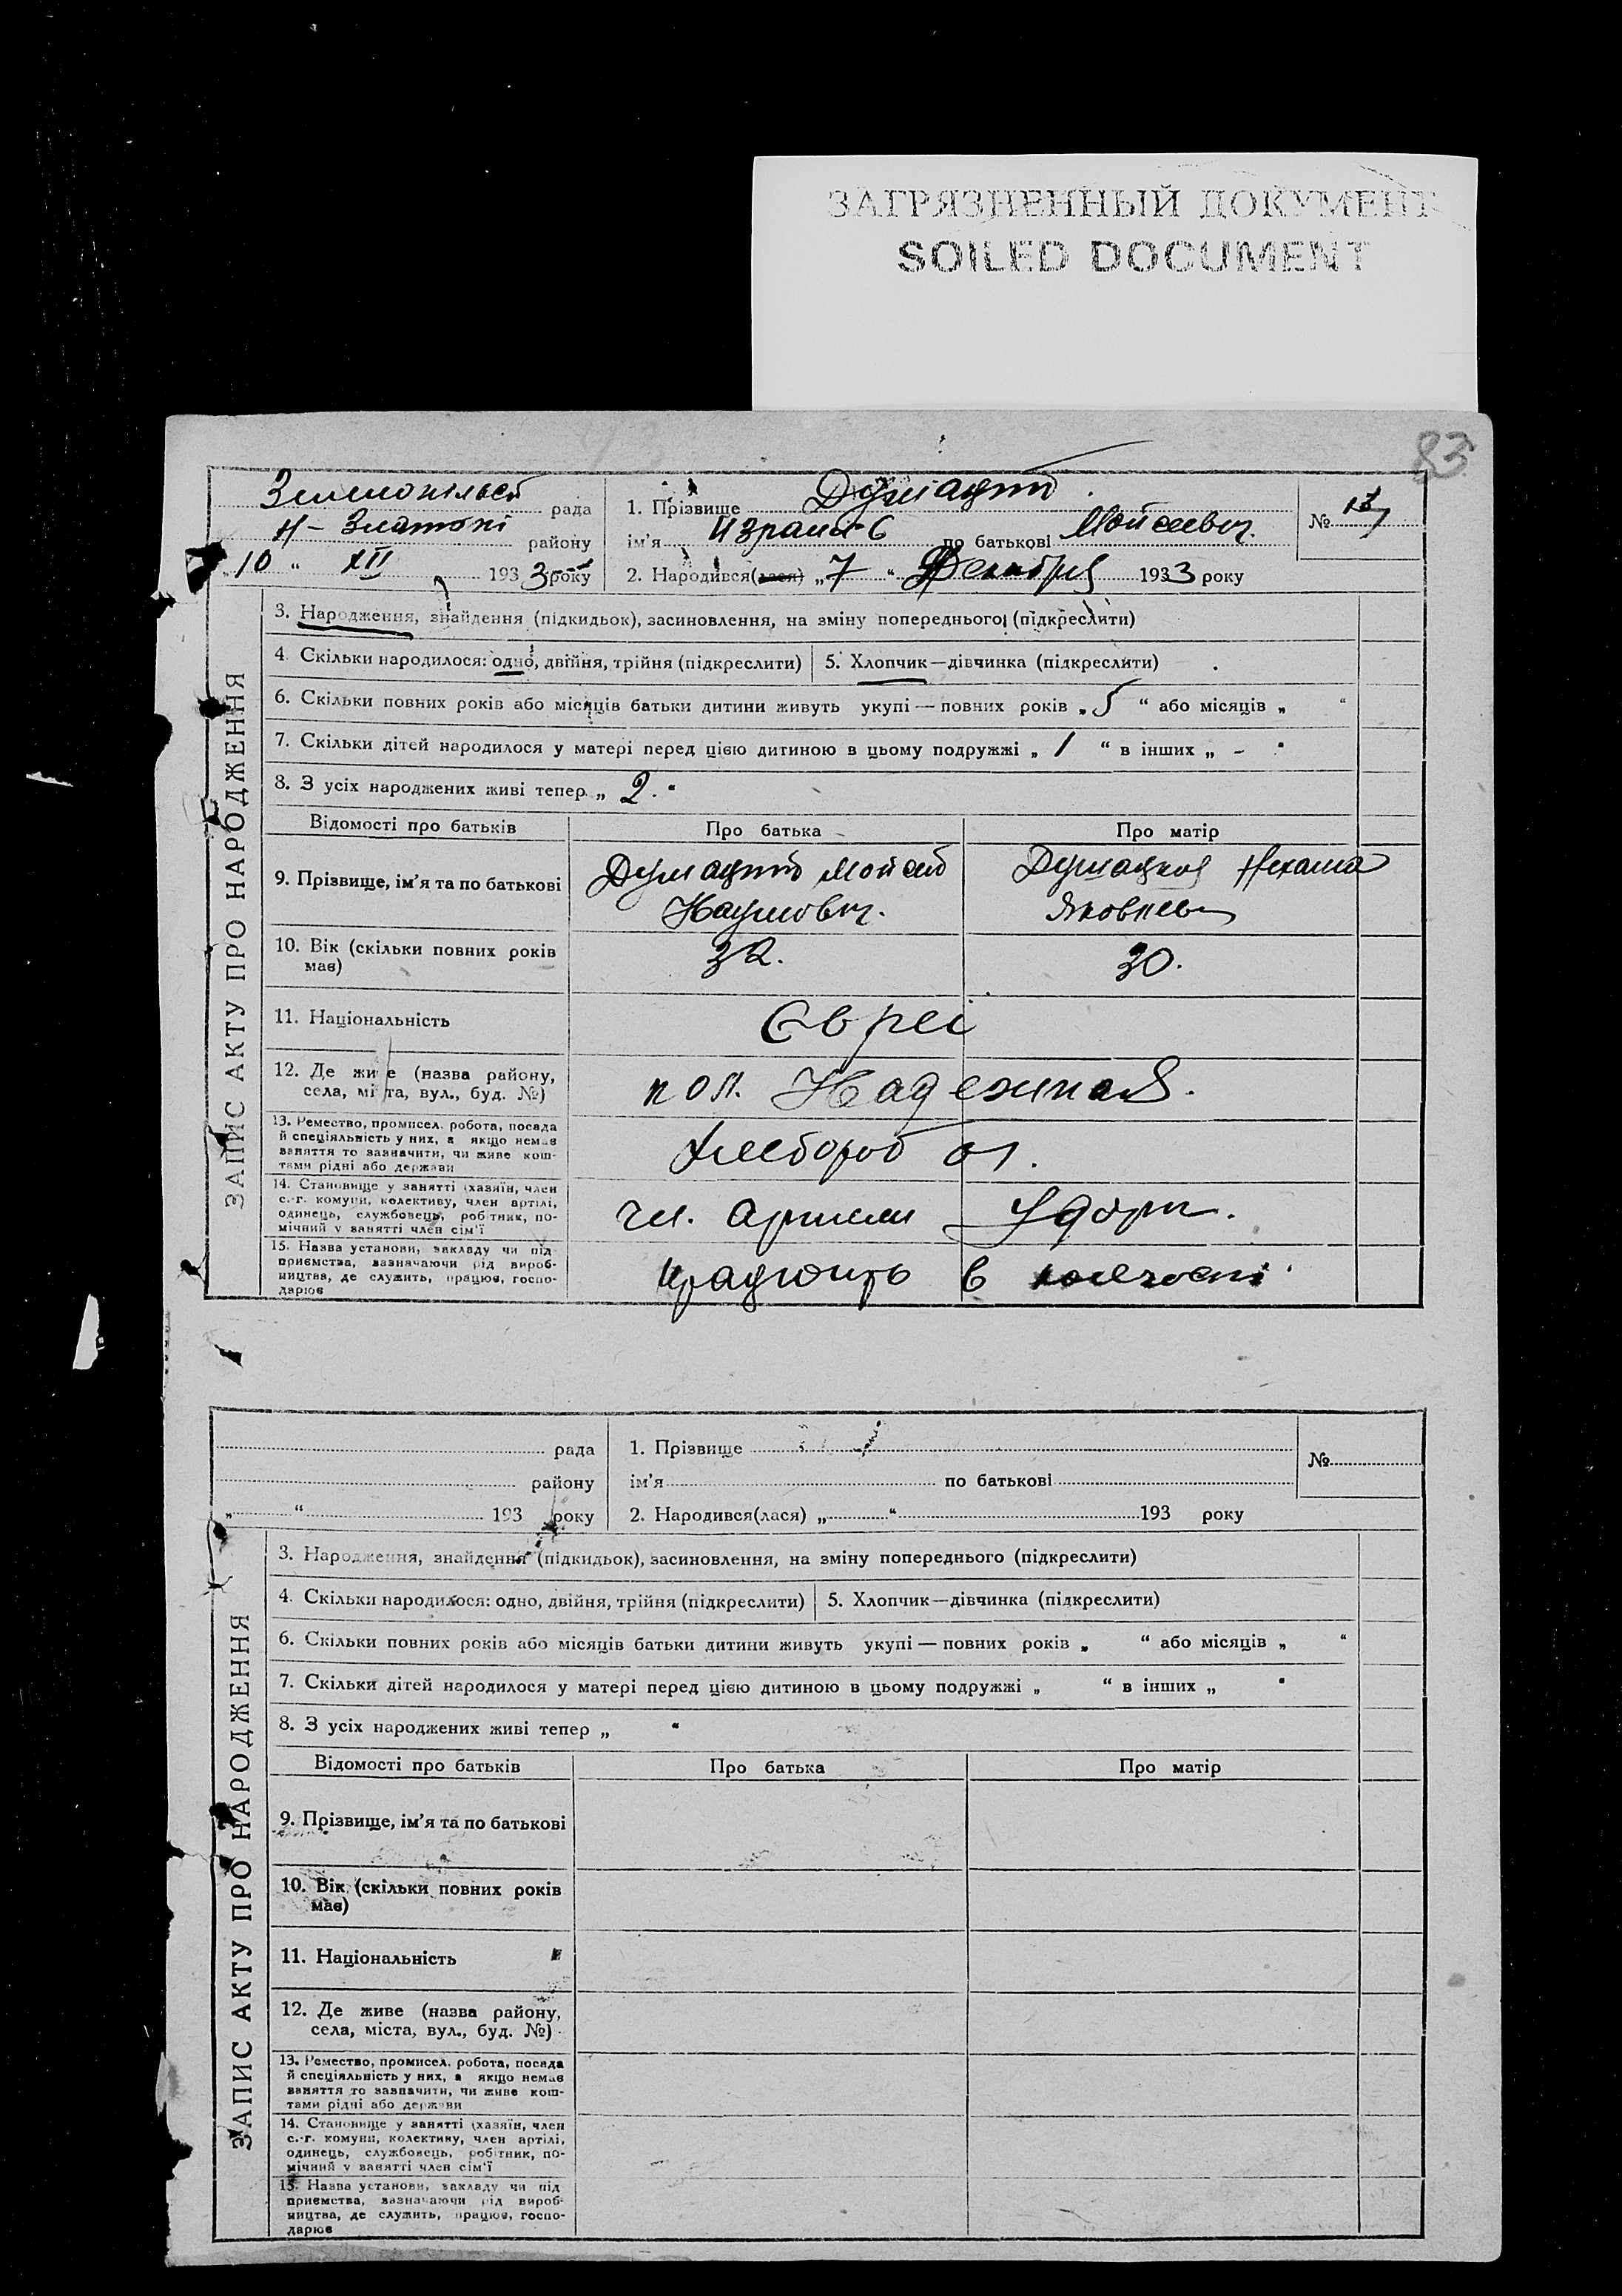 ЗАГРЯЗНЕННЫЙ ДОКУМЕНТ
SOILED DOCUMENT
83
рада
Н-Златопі району
10 " XII 1933 року
1. Прізвище
ім'я по батькові Мойсеевич.
2. Народився(лася) „7" Декабря 1933 року
№
ЗАПИС АКТУ ПРО НАРОДЖЕННЯ
3. Народження, знайдення (підкидьок), засиновлення, на зміну попереднього (підкреслити)
4. Скільки народилося: одно, двійня, трійня (підкреслити)
5. Хлопчик—дівчинка (підкреслити)
6. Скільки повних років або місяців батьки дитини живуть укупі — повних років „5" або місяців „ "
7. Скільки дітей народилося у матері перед цією дитиною в цьому подружжі „1" в інших „-"
8. З усіх народжених живі тепер „2."
Відомості про батьків
Про батька
Про матір
9. Прізвище, ім'я та по батькові
Наумович.
Нехама
Яковлев
10. Вік (скільки повних років
має)
32.
30.
11. Національність
Євреї
12. Де живе (назва району,
села, міста, вул., буд. №)
пос. Надежная.
13. Ремество, промисел, робота, посада
й спеціяльність у них, а якщо немає
заняття то зазначити, чи живе кош-
тами рідні або держави
Хлебороб
14. Становище у занятті (хазяїн, член
с.-г. комуни, колективу, член артілі,
одинець, службовець, робітник, по-
мічний у занятті член сім'ї
чл. Артили
15. Назва установи, закладу чи під
приємства, зазначаючи рід вироб-
ництва, де служить, працює, госпо-
дарює
Працюють в
рада
району
„ " 193 року
1. Прізвище
ім'я по батькові
2. Народився(лася) „ " 193 року
№
ЗАПИС АКТУ ПРО НАРОДЖЕННЯ
3. Народження, знайдення (підкидьок), засиновлення, на зміну попереднього (підкреслити)
4. Скільки народилося: одно, двійня, трійня (підкреслити)
5. Хлопчик—дівчинка (підкреслити)
6. Скільки повних років або місяців батьки дитини живуть укупі — повних років „ " або місяців „ "
7. Скільки дітей народилося у матері перед цією дитиною в цьому подружжі „ " в інших „ "
8. З усіх народжених живі тепер „ "
Відомості про батьків
Про батька
Про матір
9. Прізвище, ім'я та по батькові
10. Вік (скільки повних років
має)
11. Національність
12. Де живе (назва району,
села, міста, вул., буд. №)
13. Ремество, промисел, робота, посада
й спеціяльність у них, а якщо немає
заняття то зазначити, чи живе кош-
тами рідні або держави
14. Становище у занятті (хазяїн, член
с.-г. комуни, колективу, член артілі,
одинець, службовець, робітник, по-
мічний у занятті член сім'ї
15. Назва установи, закладу чи під
приємства, зазначаючи рід вироб-
ництва, де служить, працює, госпо-
дарює